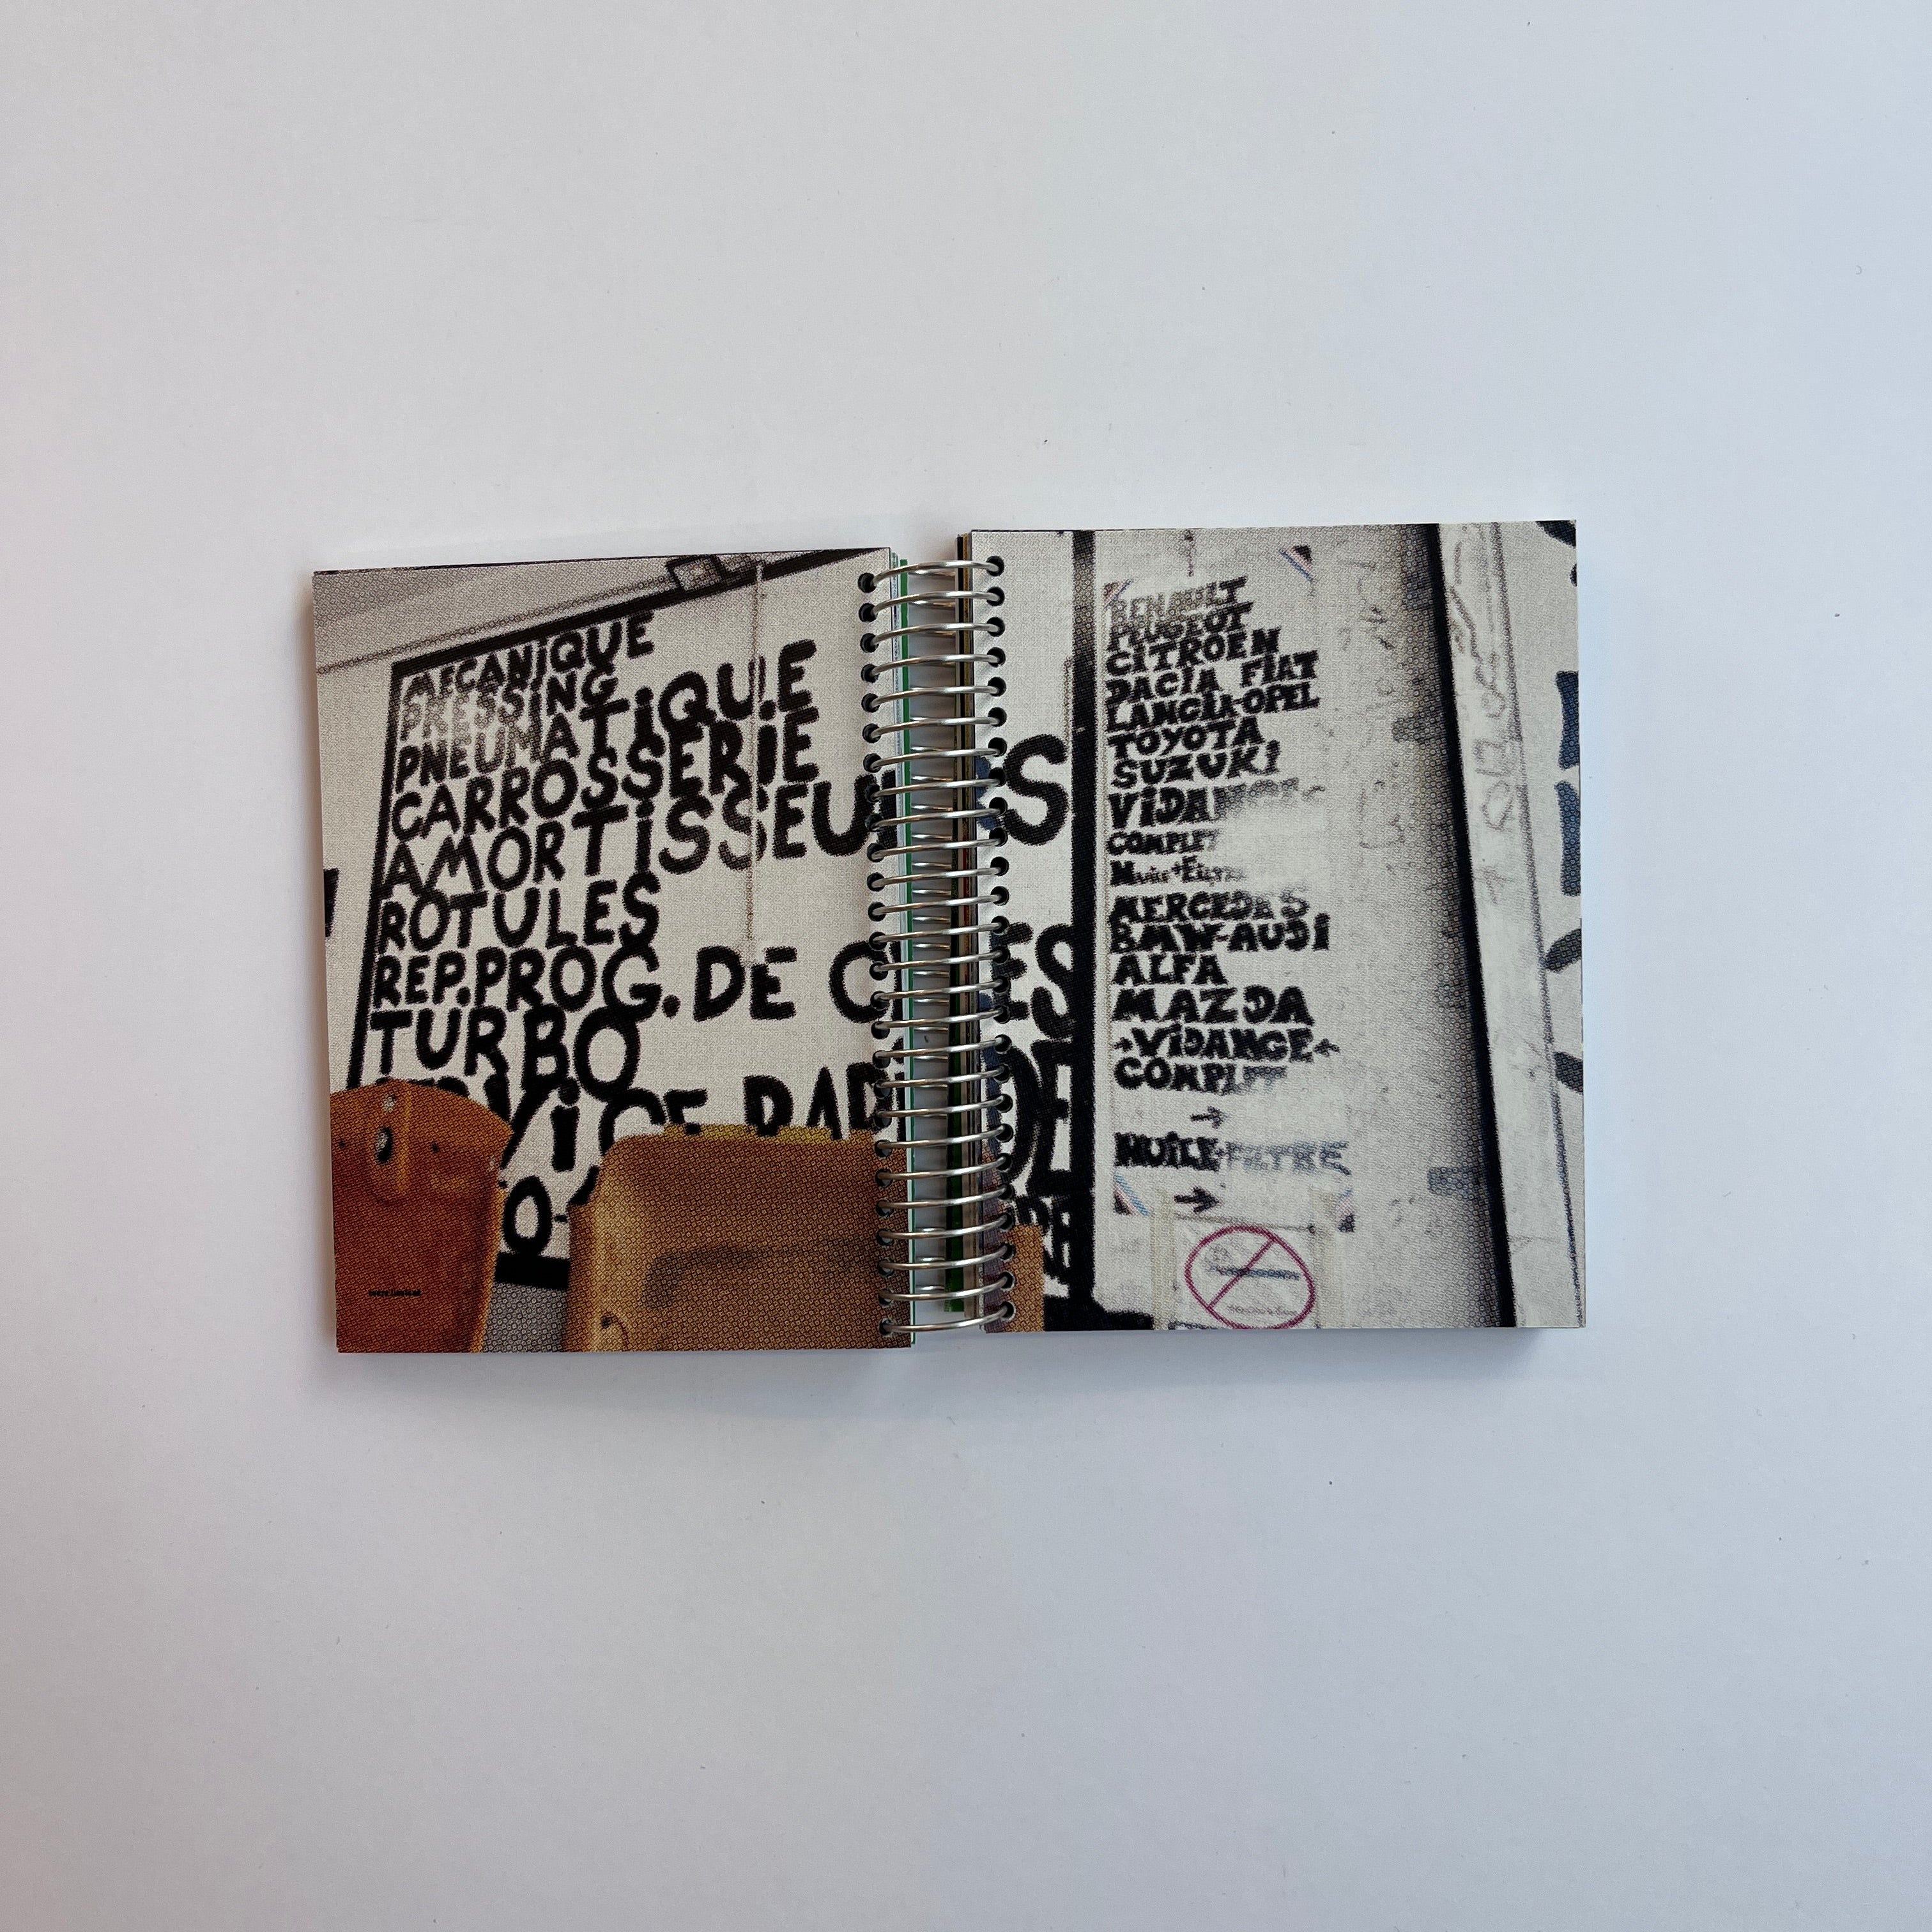 MECANiQUE
PRESSiNG
PNEUMATiQUE
CARROSSERiE
AMORTiSSEURS
ROTULES
REP.PROG. DE
TURBO
RENAULT
PEUGEOT
CiTROEN
DACiA FiAT
LANCiA-OPEL
TOYOTA
SUZUKi
ViDANGE
COMPLET
MERCEDES
BMW-AUDi
ALFA
MAZDA
ViDANGE
COMPLET
→
HUiLE-FiLTRE
→